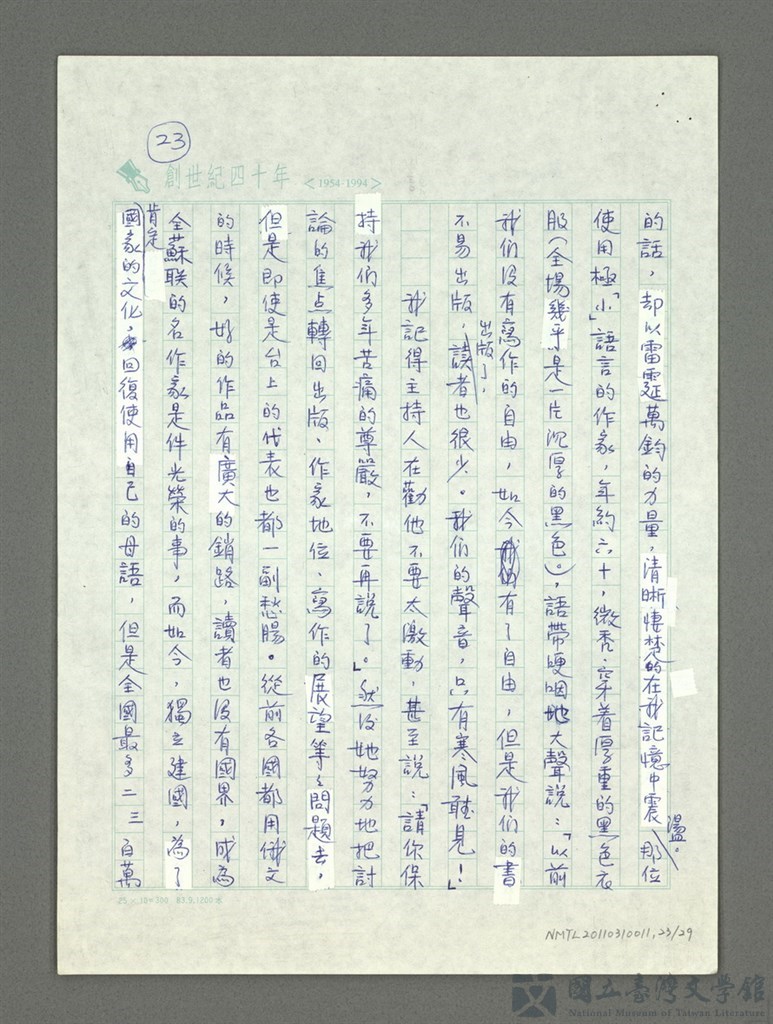 23
創世紀四十年 <1954-1994>
的話，却以雷霆萬鈞的力量，清晰悽楚的在我記憶中震盪。那位
使用極「小」語言的作家，年約六十，微禿，穿着厚重的黑色衣
服（全場幾乎是一片沉厚的黑色。），語帶哽咽地大聲說：「以前
我們没有寫作的自由，如今有了自由，但是我們的書
不易出版，出版了，讀者也很少。我們的聲音，只有寒風聽見！」
我記得主持人在勸他不要太激動，甚至說：「請你保
持我們多年苦痛的尊嚴，不要再說了」。然後她努力地把討
論的焦点轉回出版、作家地位、寫作的展望等々問題去，
但是即使是台上的代表也都一副愁腸。從前各國都用俄文
的時候，好的作品有廣大的銷路，讀者也没有國界，成為
全蘇联的名作家是件光榮的事，而如今，獨立建國，為了
肯定國家的文化，回復使用自己的母語，但是全國最多二三百萬
25×12=300 83.9.1200本
NMTL20110310011,23/29
國立臺灣文學館
National Museum of Taiwan Literature